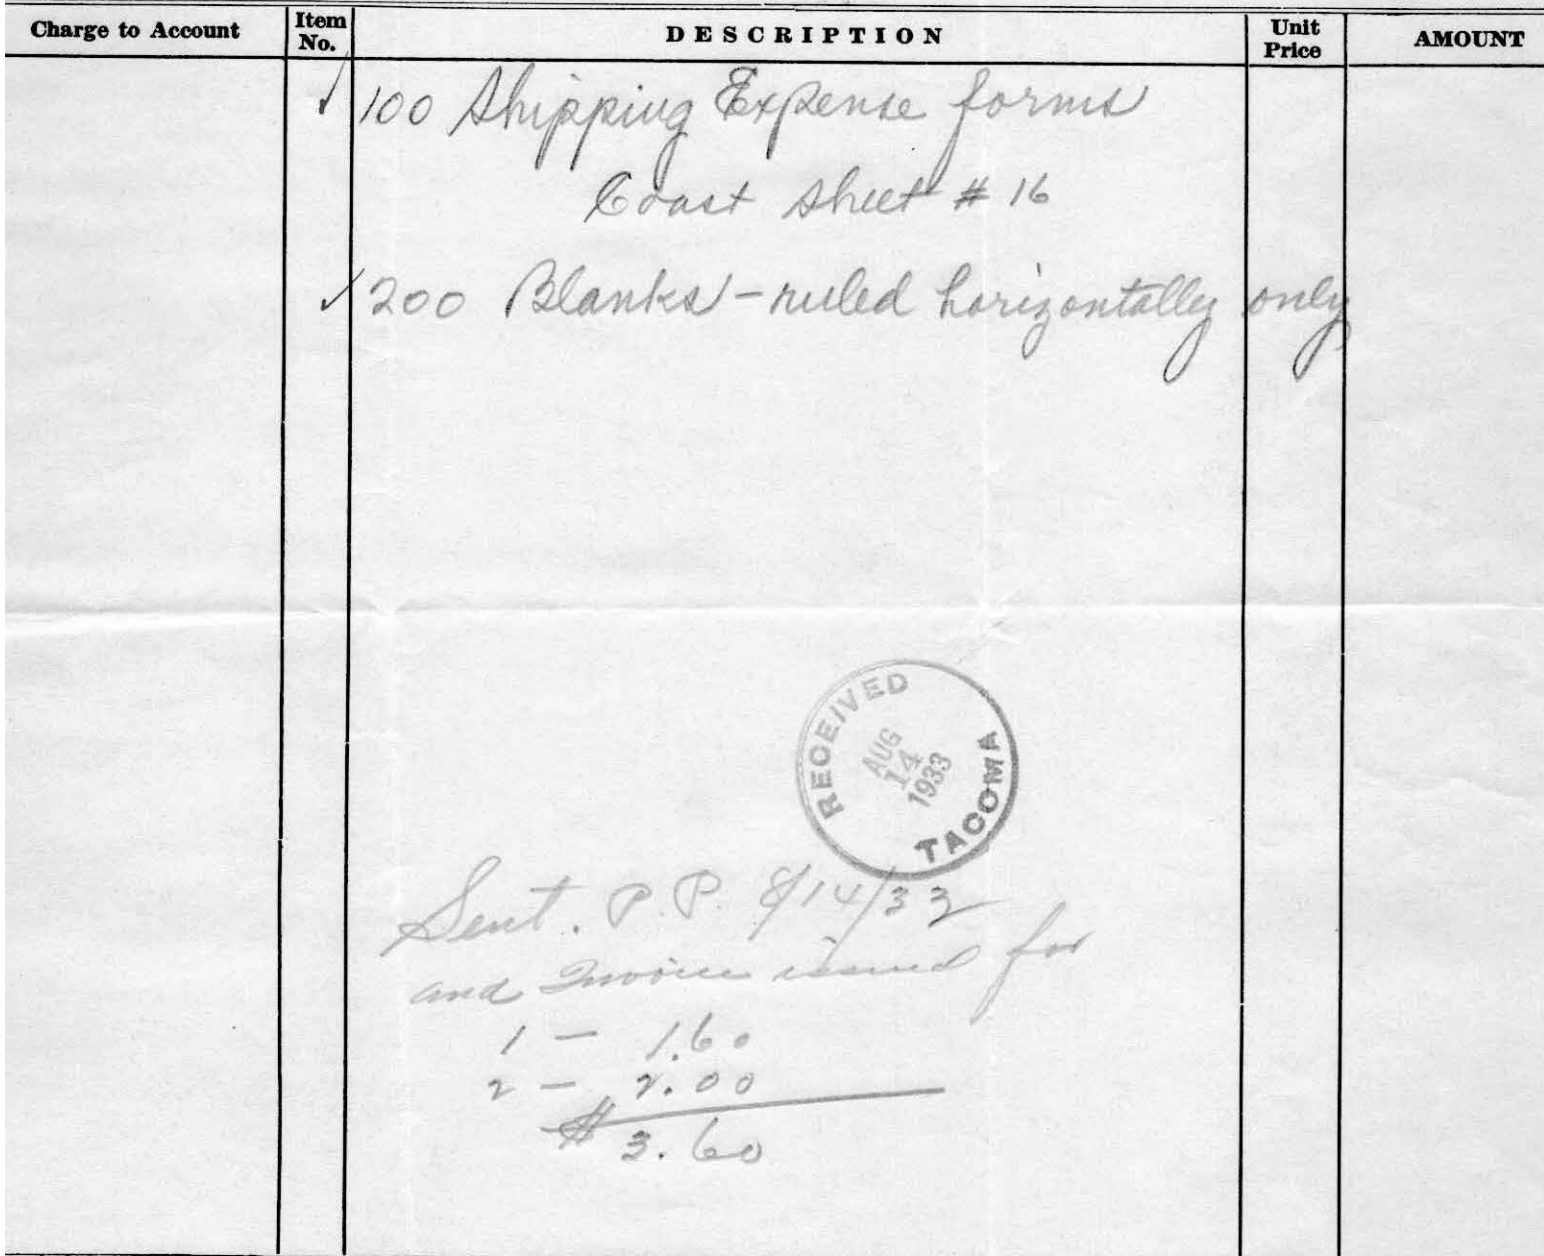 Charge to Account Item No. DESCRIPTION Unit Price AMOUNT
✓ 100 Shipping Expense forms
Coast sheet # 16
✓ 200 Blanks - ruled horizontally only
RECEIVED
AUG
14
1933
TACOMA
Sent. P.P. 8/14/33
and Invoice issued for
1 - 1.60
2 - 2.00
$ 3.60